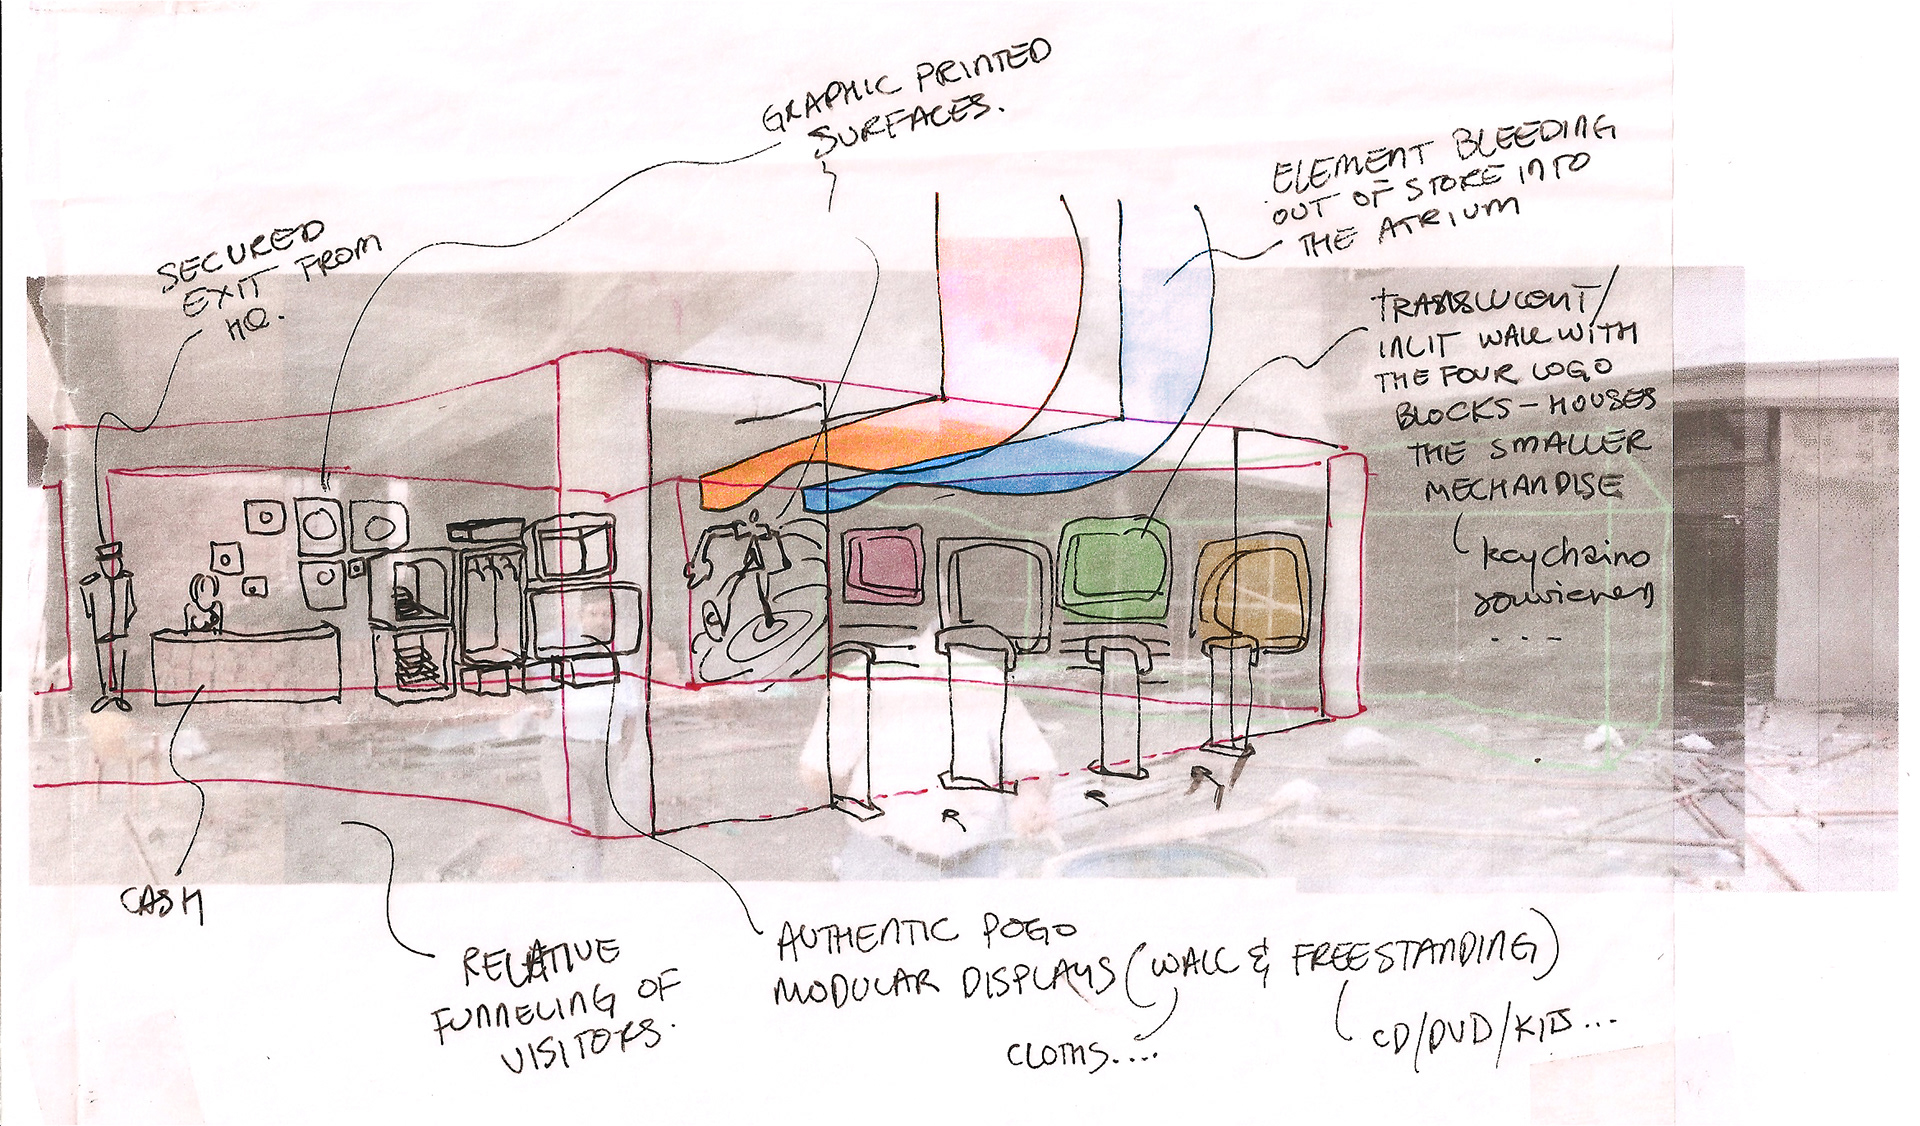 GRAPHIC PRINTED
SURFACES.
ELEMENT BLEEDING
OUT OF STORE INTO
THE ATRIUM
SECURED
EXIT FROM
HQ.
TRANSLUCENT/
INLIT WALL WITH
THE FOUR LOGO
BLOCKS - HOUSES
THE SMALLER
MECHANDISE
keychains
souvieners
...
CASH
RELATIVE
FUNNELING OF
VISITORS.
AUTHENTIC POGO
MODULAR DISPLAYS (WALL & FREESTANDING)
CLOTHS....
CD/DVD/KITS...